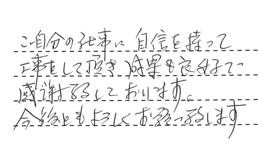 ご自分の仕事に自信を持って
工事をして頂き成果も良好で
感謝致しております。
今後ともよろしくお願い致します